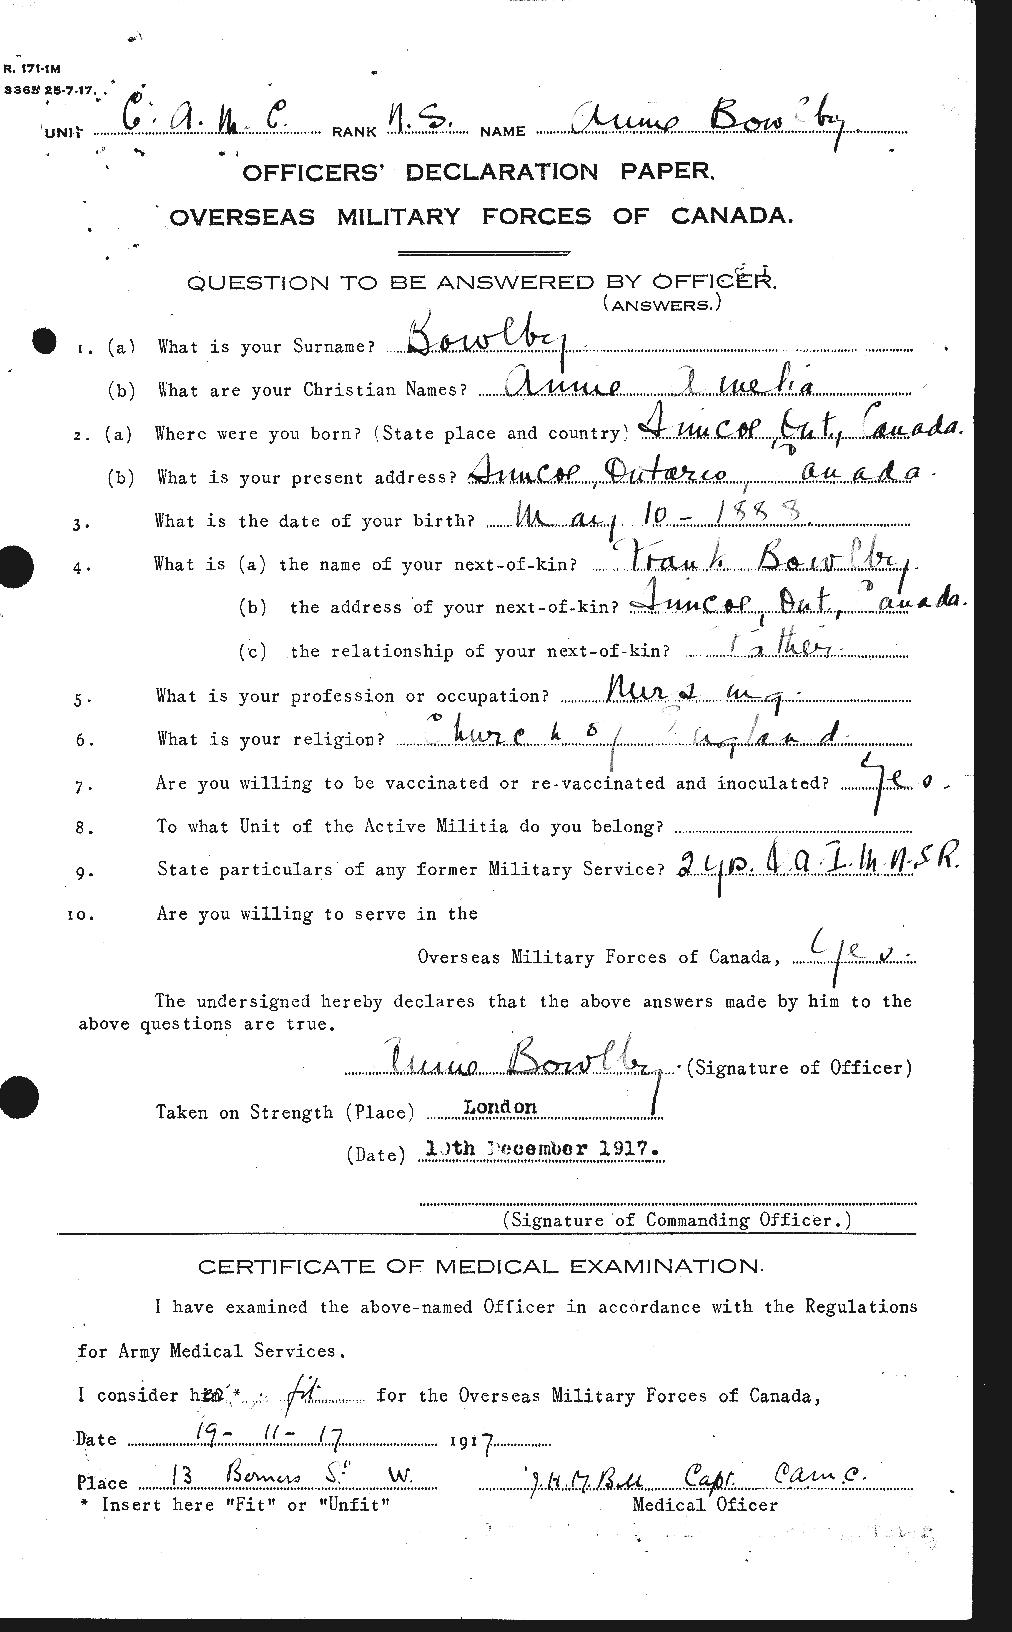 R. 171-1M
3365 25-7-17.
UNIT C. A. M. C. RANK N.S. NAME Annie Bowlby
OFFICERS' DECLARATION PAPER.
OVERSEAS MILITARY FORCES OF CANADA.
QUESTION TO BE ANSWERED BY OFFICER.
(ANSWERS.)
1. (a) What is your Surname? Bowlby
(b) What are your Christian Names? Annie Amelia
2. (a) Where were you born? (State place and country) Simcoe, Ont., Canada.
(b) What is your present address? Simcoe, Ontario, Canada.
3. What is the date of your birth? May 10 - 1888
4. What is (a) the name of your next-of-kin? Frank Bowlby
(b) the address of your next-of-kin? Simcoe, Ont., Canada.
(c) the relationship of your next-of-kin? Father.
5. What is your profession or occupation? Nursing.
6. What is your religion? Church of England.
7. Are you willing to be vaccinated or re-vaccinated and inoculated? Yes.
8. To what Unit of the Active Militia do you belong?
9. State particulars of any former Military Service? 2 yrs. Q.A.I.M.N.S.R.
10. Are you willing to serve in the
Overseas Military Forces of Canada, Yes.
The undersigned hereby declares that the above answers made by him to the
above questions are true.
Annie Bowlby. (Signature of Officer)
Taken on Strength (Place) London
(Date) December 1917.
(Signature of Commanding Officer.)
CERTIFICATE OF MEDICAL EXAMINATION.
I have examined the above-named Officer in accordance with the Regulations
for Army Medical Services.
I consider * fit for the Overseas Military Forces of Canada,
Date 19- 11- 17 1917
Place 13 Berners St W. Bell Capt. C.A.M.C.
* Insert here "Fit" or "Unfit" Medical Oficer